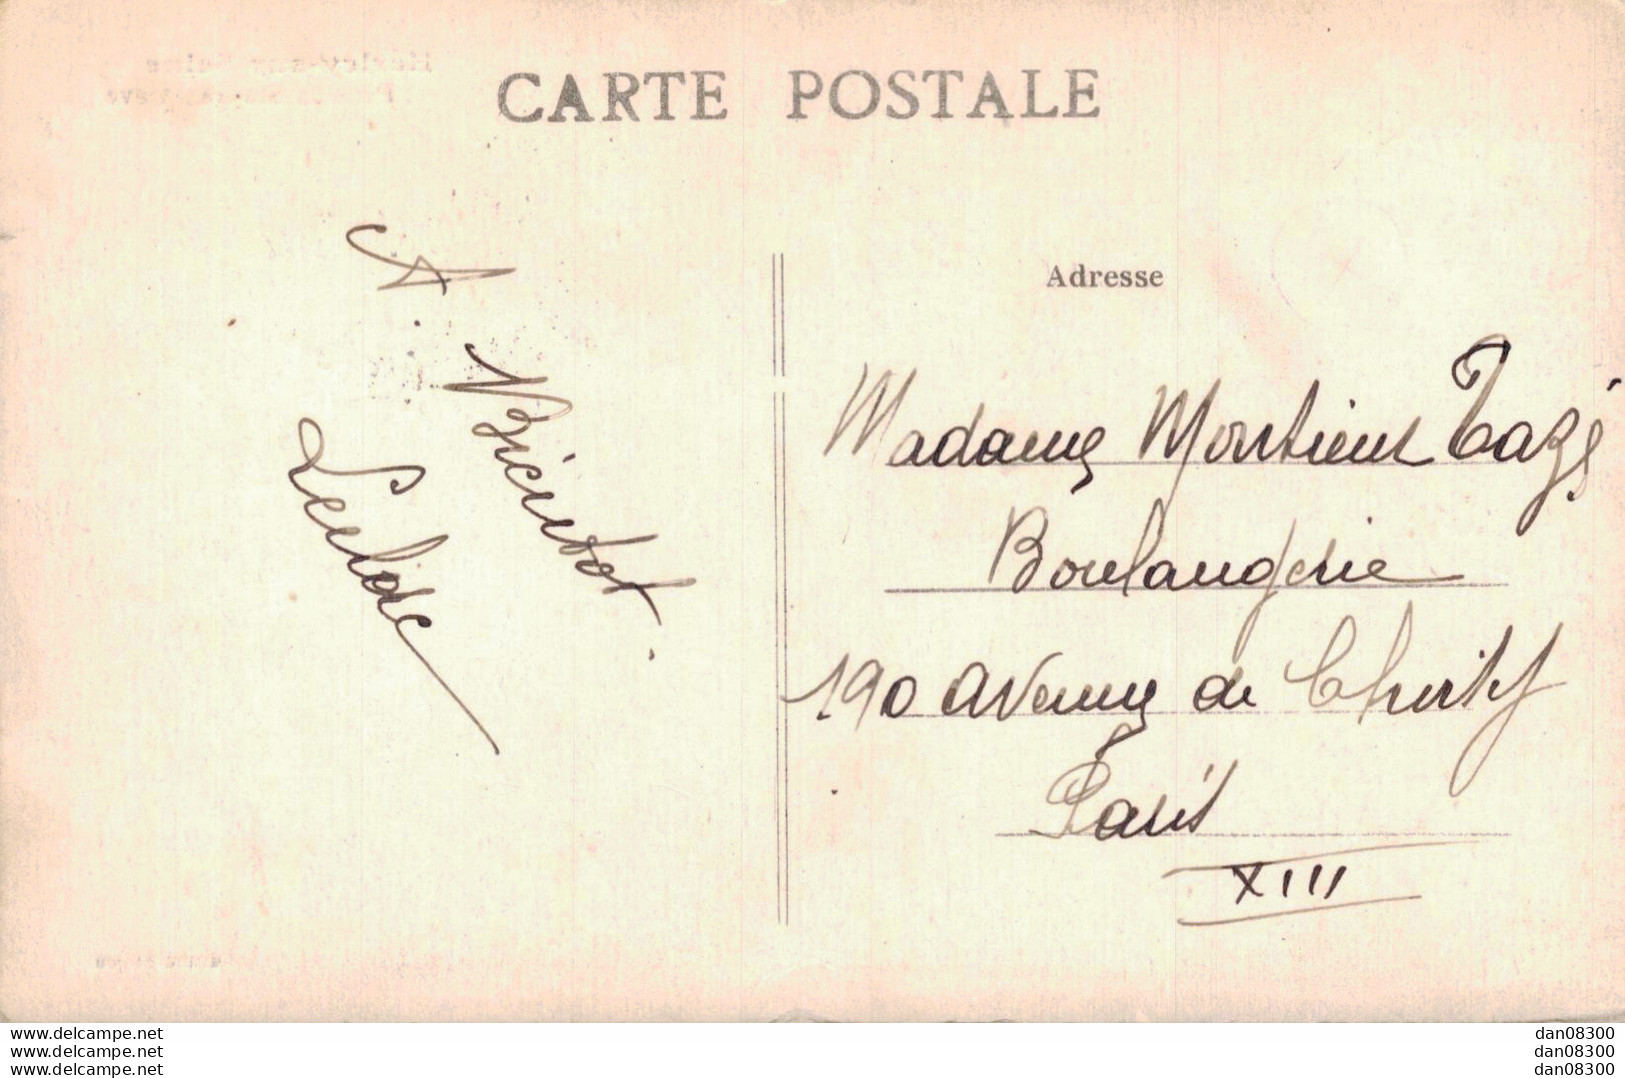 CARTE POSTALE
A. Bientot.
Leulide
Adresse
Madame Monsieur Tazé
Boulangerie
190 avenue de Choisy
Paris
XIII
www.delcampe.net
www.delcampe.net
www.delcampe.net
dan08300
dan08300
dan08300